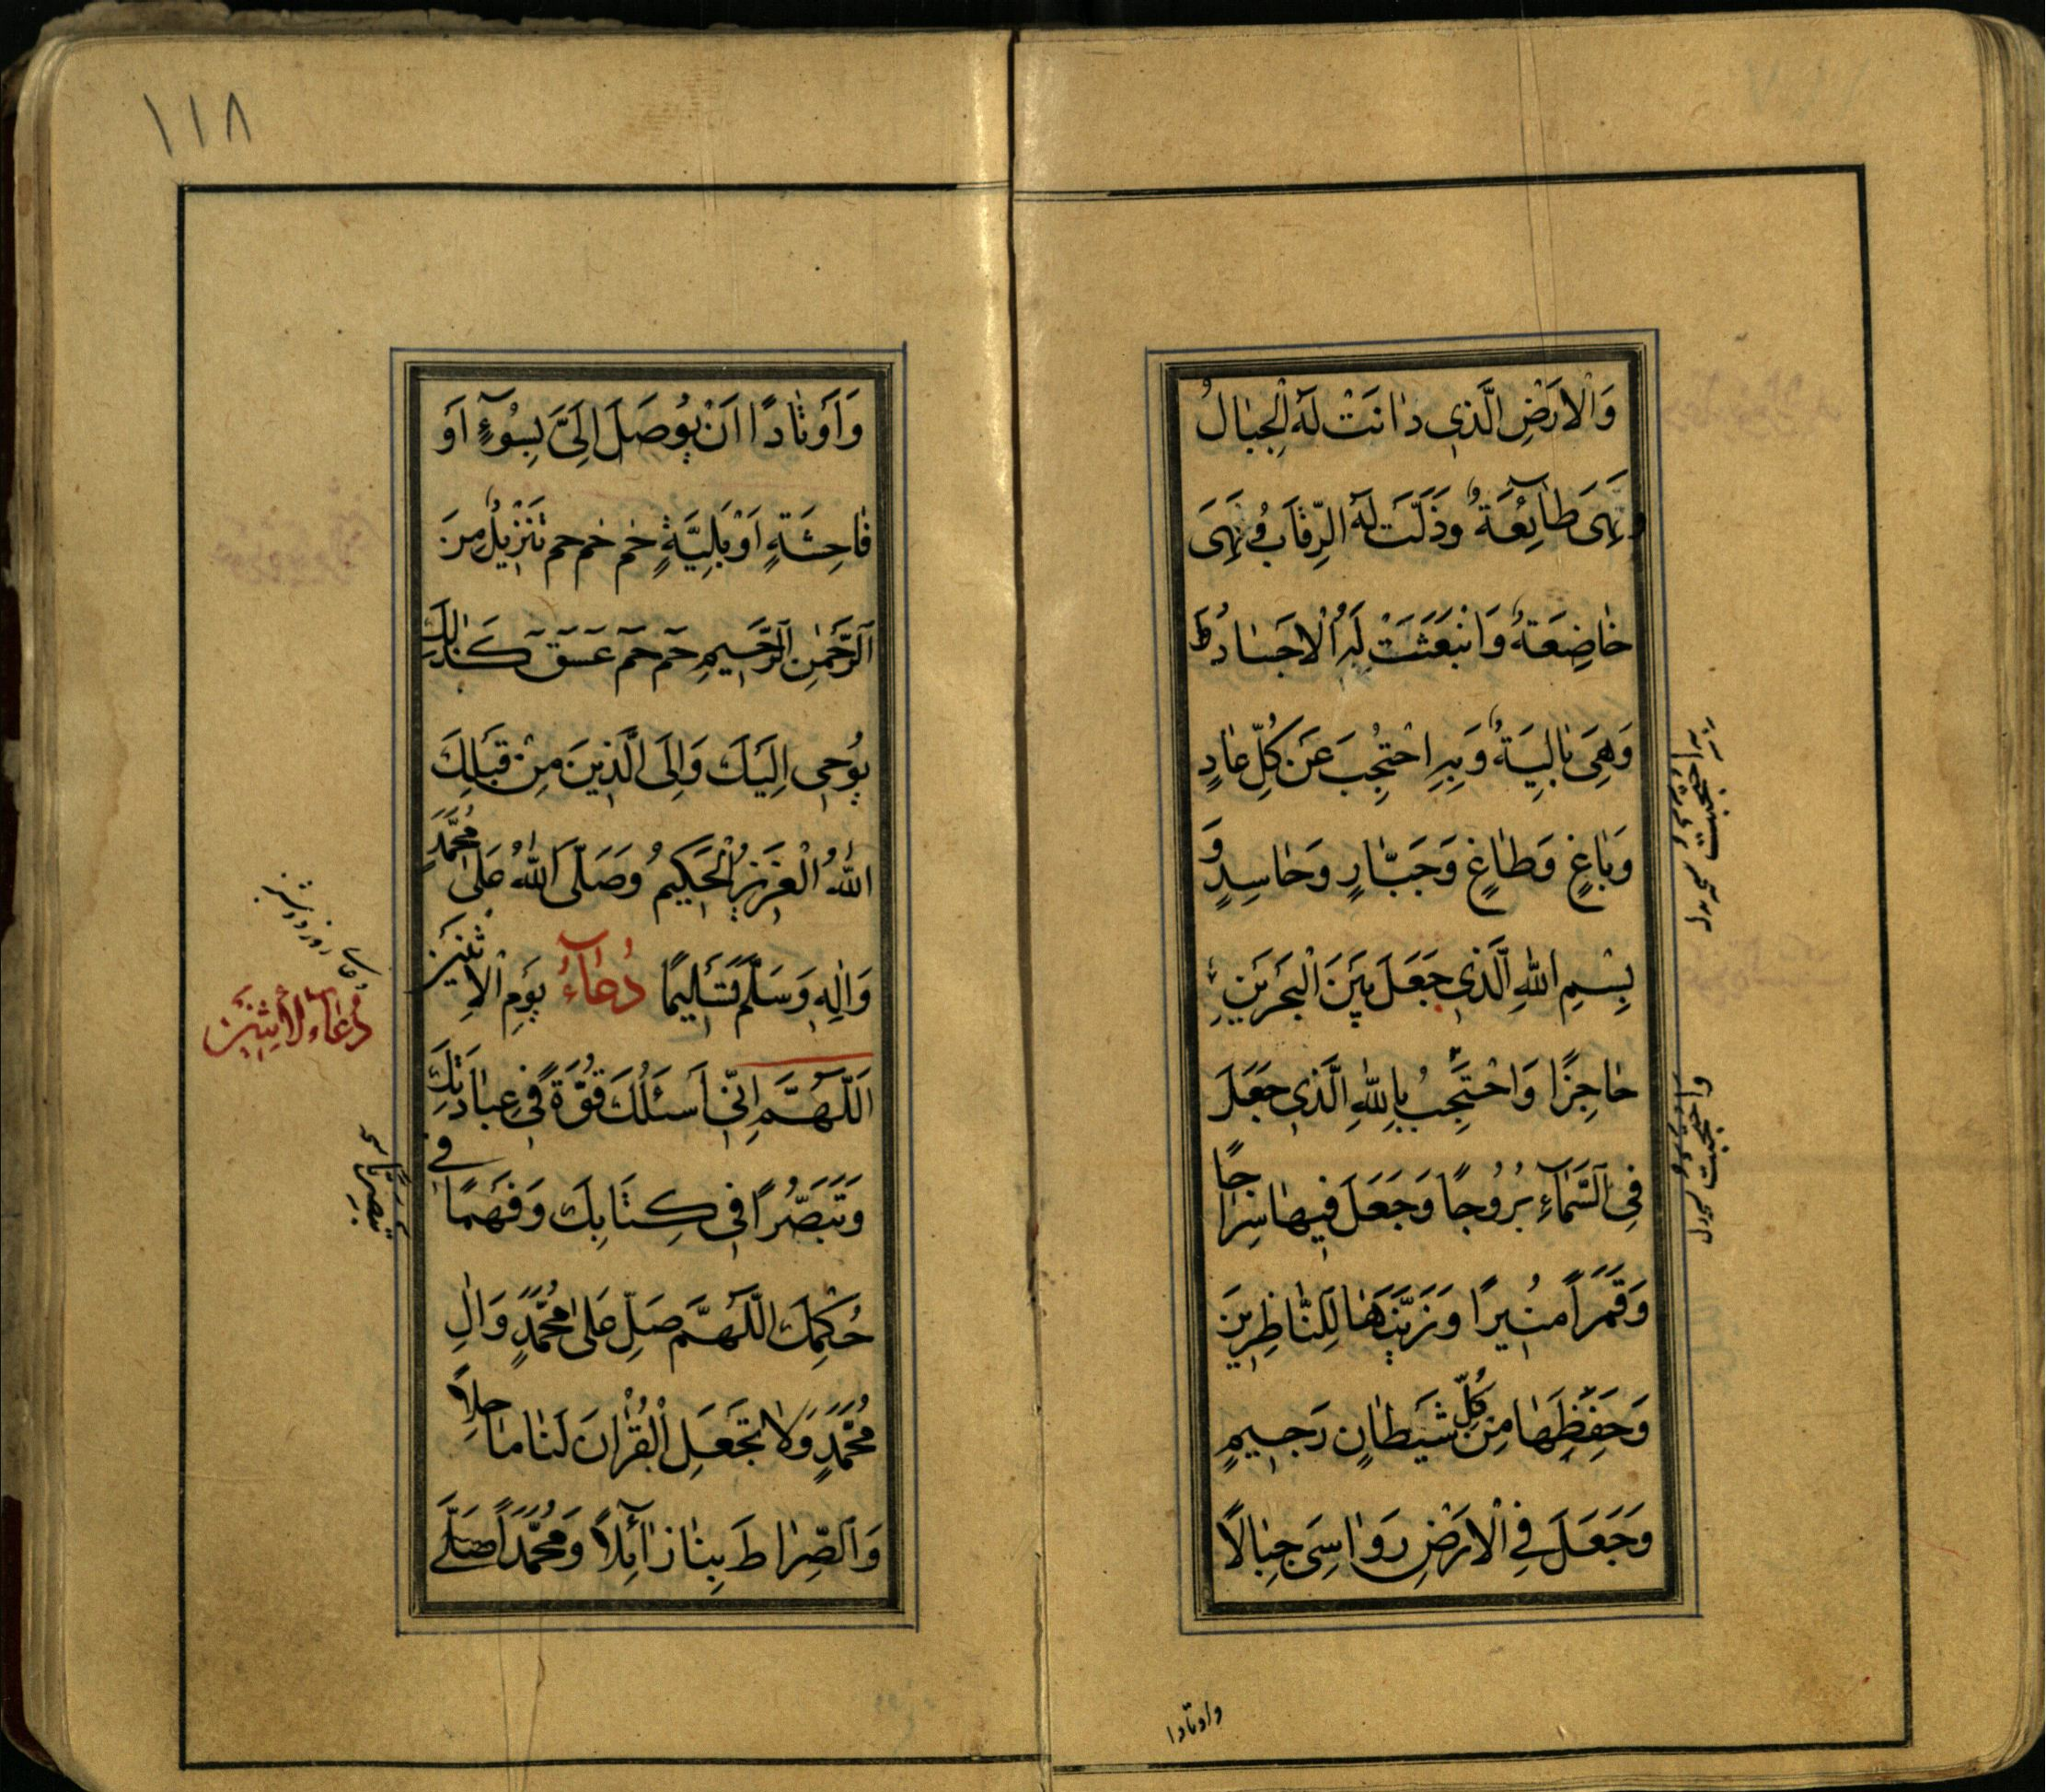 وَالْاَرْضِ الَّذي دٰانَتْ لَهُ الْجِبٰالُ
وَهِيَ طٰآئِعَةٌ وَذَلَّتْ لَهُ الرِّقٰابُ وَهِيَ
خٰاضِعَةٌ وَانْبَعَثَتْ لَهُ الْاَجْسٰادُ
وَهِيَ بٰالِيَةٌ وَبِهِ احْتَجَبَ عَنْ كُلِّ عٰادٍ
وَبٰاغٍ وَطٰاغٍ وَجَبّٰارٍ وَحٰاسِدٍ وَ
بِسْمِ اللهِ الَّذي جَعَلَ بَيْنَ الْبَحْرَيْنِ
حٰاجِزًا وَاحْتَجِبُ بِاللهِ الَّذي جَعَلَ
فِي السَّمٰآءِ بُرُوجًا وَجَعَلَ فيهٰا سِرٰاجًا
وَقَمَرًا مُنيرًا وَزَيَّنَهٰا لِلنّٰاظِرينَ
وَحَفِظَهٰا مِنْ كُلِّ شَيْطٰانٍ رَجيمٍ
وَجَعَلَ فِي الْاَرْضِ رَوٰاسِيَ جِبٰالًا
واحتجبت
واوتادا
١١٨
وَاَوْتٰادًا اَنْ يُوصَلَ اِلَيَّ بِسُوٓءٍ اَوْ
فٰاحِشَةٍ اَوْ بَلِيَّةٍ حٰم حٰم حم تَنْزيلٌ مِنَ
الرَّحْمٰنِ الرَّحيمِ حٓم حٓم عٓسٓقٓ كَذٰلِكَ
يُوحي اِلَيْكَ وَاِلَى الَّذينَ مِنْ قَبْلِكَ
اللهُ الْعَزيزُ الْحَكيمُ وَصَلَّى اللهُ عَلىٰ مُحَمَّدٍ
وَاٰلِهِ وَسَلَّمَ تَسْليمًا دُعٰآءُ يَوْمِ الْاِثْنَيْنِ
اَللّٰهُمَّ اِنّي اَسْئَلُكَ قُوَّةً في عِبٰادَتِكَ
وَتَبَصُّرًا في كِتٰابِكَ وَفَهْمًا في
حُكْمِكَ اللّٰهُمَّ صَلِّ عَلىٰ مُحَمَّدٍ وَاٰلِ
مُحَمَّدٍ وَلٰا تَجْعَلِ الْقُرْاٰنَ لَنٰا مٰاحِلًا
وَالصِّرٰاطَ بِنٰا زٰآئِلًا وَمُحَمَّدًا صَلَّى
دعاء الاثنين